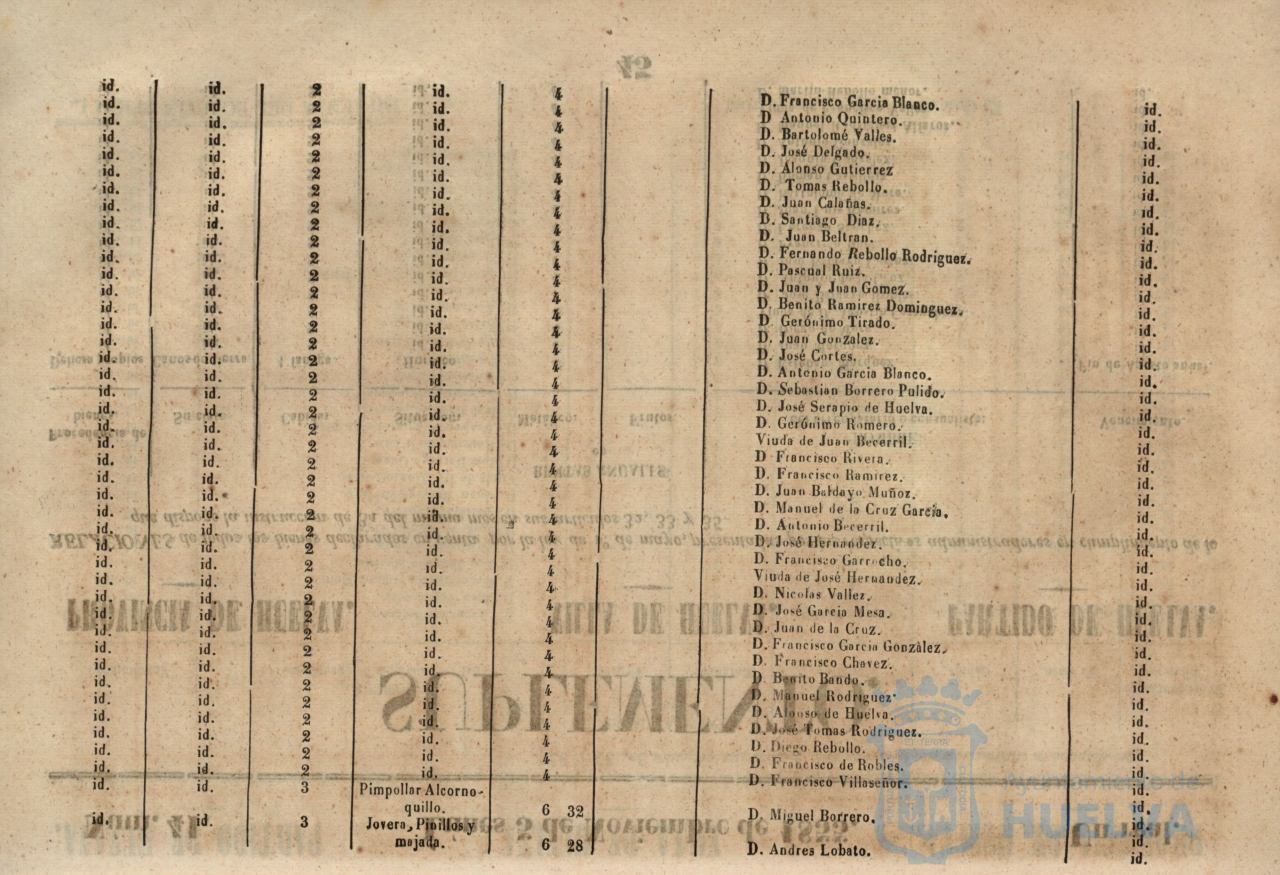 45
id. id. 2 id. 4 D. Francisco Garcia Blanco. id.
id. id. 2 id. 4 D Antonio Quintero. id.
id. id. 2 id. 4 D. Bartolomé Valles. id.
id. id. 2 id. 4 D. José Delgado. id.
id. id. 2 id. 4 D. Alonso Gutierrez id.
id. id. 2 id. 4 D. Tomas Rebollo. id.
id. id. 2 id. 4 D. Juan Calañas. id.
id. id. 2 id. 4 D. Santiago Diaz. id.
id. id. 2 id. 4 D. Juan Beltran. id.
id. id. 2 id. 4 D. Fernando Rebollo Rodriguez. id.
id. id. 2 id. 4 D. Pascual Ruiz. id.
id. id. 2 id. 4 D. Juan y Juan Gomez. id.
id. id. 2 id. 4 D. Benito Ramirez Dominguez. id.
id. id. 2 id. 4 D. Gerónimo Tirado. id.
id. id. 2 id. 4 D. Juan Gonzalez. id.
id. id. 2 id. 4 D. José Cortes. id.
id. id. 2 id. 4 D. Antonio Garcia Blanco. id.
id. id. 2 id. 4 D. Sebastian Borrero Pulido. id.
id. id. 2 id. 4 D. José Serapio de Huelva. id.
id. id. 2 id. 4 D. Gerónimo Romero. id.
id. id. 2 id. 4 Viuda de Juan Becerril. id.
id. id. 2 id. 4 D Francisco Rivera. id.
id. id. 2 id. 4 D. Francisco Ramirez. id.
id. id. 2 id. 4 D. Juan Baldayo Muñoz. id.
id. id. 2 id. 4 D. Manuel de la Cruz Garcia. id.
id. id. 2 id. 4 D. Antonio Becerril. id.
id. id. 2 id. 4 D. José Hernandez. id.
id. id. 2 id. 4 D. Francisco Garrocho. id.
id. id. 2 id. 4 Viuda de José Hernandez. id.
id. id. 2 id. 4 D. Nicolas Vallez. id.
id. id. 2 id. 4 D. José Garcia Mesa. id.
id. id. 2 id. 4 D. Juan de la Cruz. id.
id. id. 2 id. 4 D. Francisco Garcia Gonzàlez. id.
id. id. 2 id. 4 D. Francisco Chavez. id.
id. id. 2 id. 4 D. Benito Bando. id.
id. id. 2 id. 4 D. Manuel Rodriguez. id.
id. id. 2 id. 4 D. Alonso de Huelva. id.
id. id. 2 id. 4 D. José Tomas Rodriguez. id.
id. id. 2 id. 4 D. Diego Rebollo. id.
id. id. 2 id. 4 D. Francisco de Robles. id.
id. id. 2 id. 4 D. Francisco Villaseñor. id.
id. id. 3 Pimpollar Alcorno-
quillo. 6 32 D. Miguel Borrero. id.
id. id. 3 Jovera, Pinillos y
majada. 6 28 D. Andres Lobato. id.
Ayuntamiento de
HUELVA